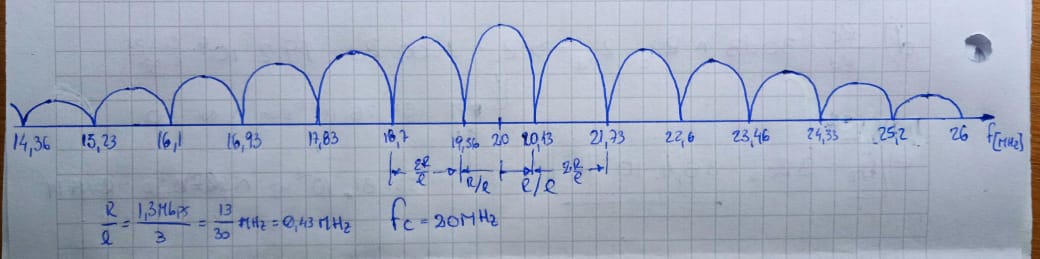 14,36 15,23 16,1 16,93 17,83 18,7 19,56 20 20,43 21,73 22,6 23,46 24,33 25,2 26 f[MHz]
2R/l R/l R/l 2R/l
R/l = 1,3Mbps/3 = 13/30 MHz = 0,43MHz fc = 20MHz